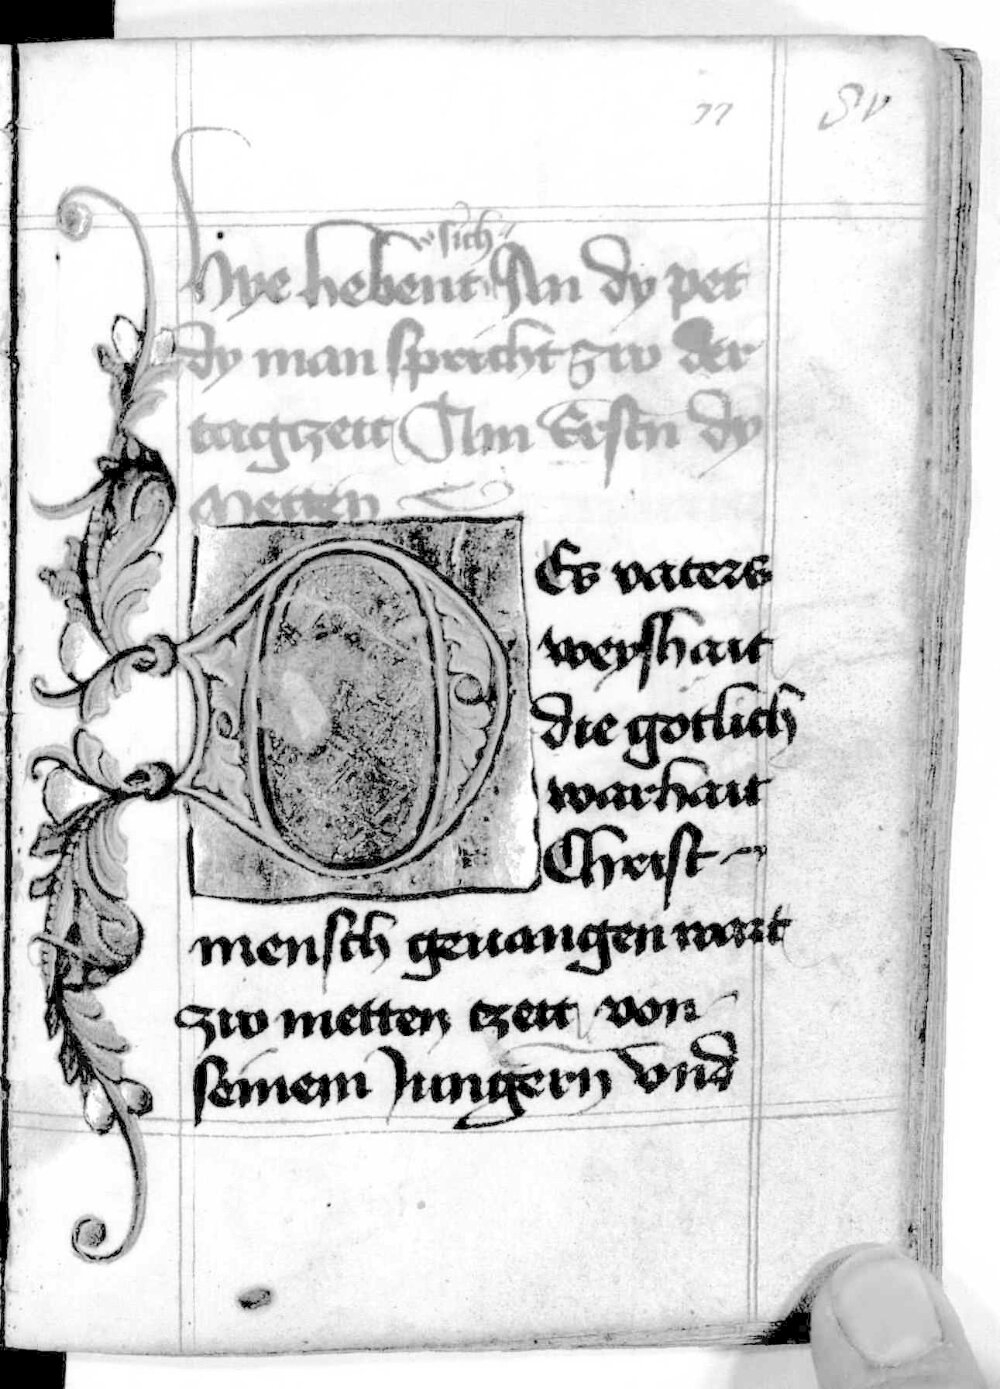 77 85
sich
Hye hebent An dy pet
dy man spricht zw der
tagtzeit Am Erstn dy
Metten
DEs vaters
weyshait
die gotlich
warhait
Christ
mensch geuangen wart
zw metten tzeit von
seinem Jungern vnd